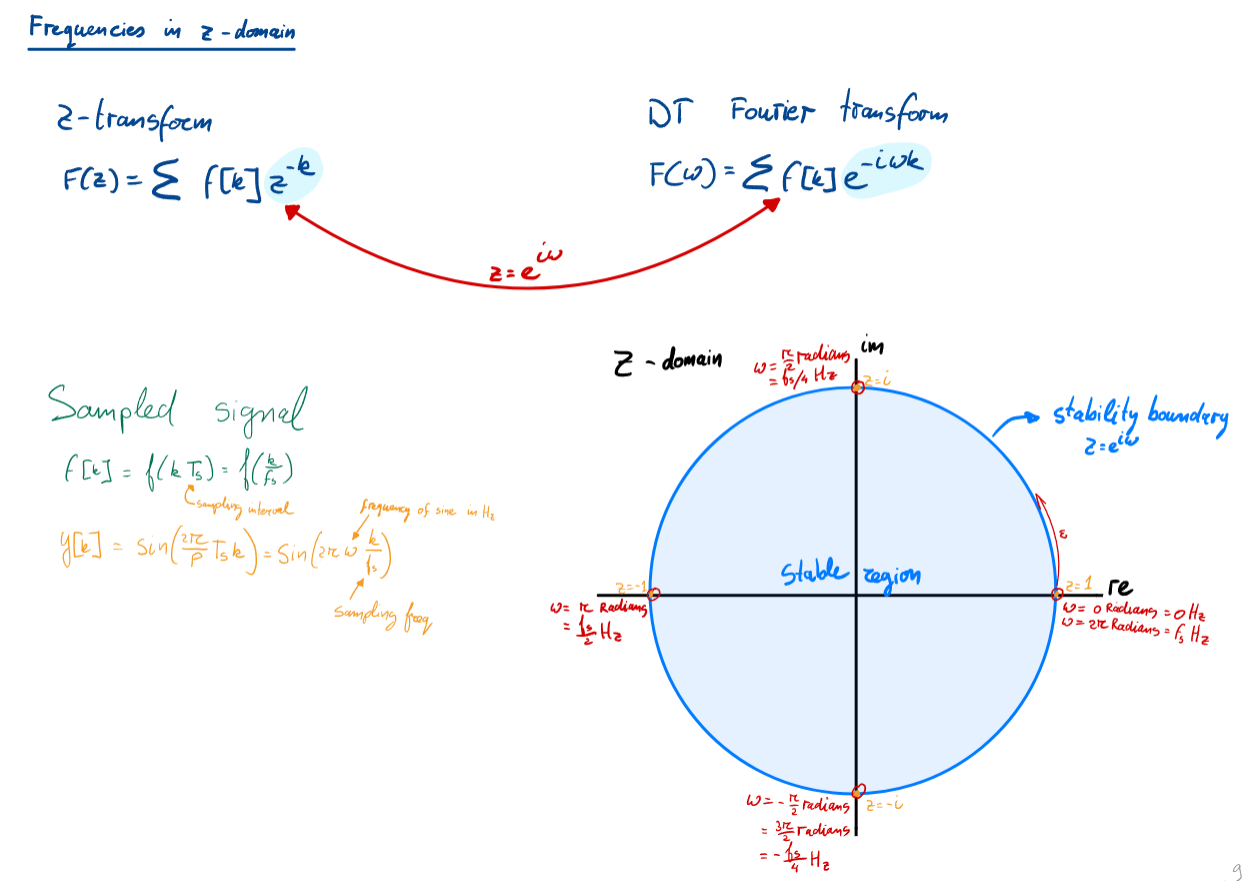 Frequencies in z-domain
z-transform
F(z) = Σ f[k] z^-k
DT Fourier transform
F(ω) = Σ f[k] e^-iωk
z = e^iω
Sampled signal
f[k] = f(k Ts) = f(k/fs)
sampling interval
frequency of sine in Hz
y[k] = Sin(2π/P Ts k) = Sin(2π ω k/fs)
Sampling freq
Z-domain
im
ω = π/2 radians
= fs/4 Hz
z=i
stability boundary
z=e^iω
ε
Stable region
z=-1
ω = π Radians
= fs/2 Hz
z=1
re
ω = 0 Radians = 0 Hz
ω = 2π Radians = fs Hz
ω = -π/2 radians
= 3π/2 radians
= -fs/4 Hz
z=-i
9